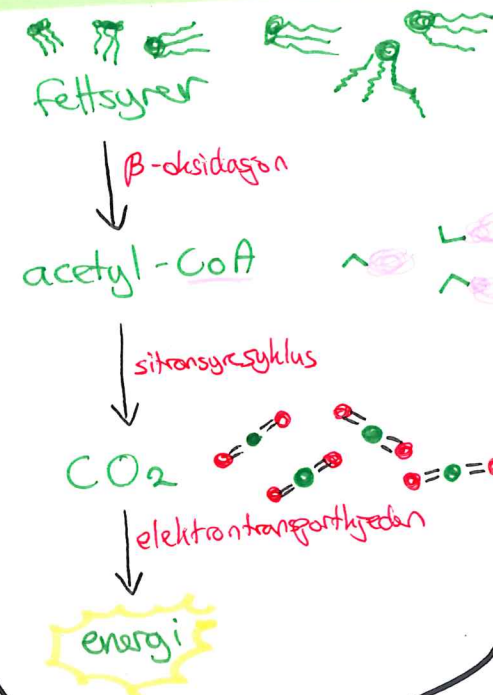 fettsyrer
β-oksidasjon
acetyl-CoA
sitronsyresyklus
CO2
elektrontransportkjeden
energi